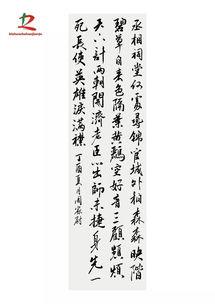 丞相祠堂何處尋錦官城外柏森森映階
碧草自春色隔葉黃鸝空好音三顧頻煩
天下計兩朝開濟老臣心出師未捷身先
死長使英雄淚滿襟
丁酉夏月周家